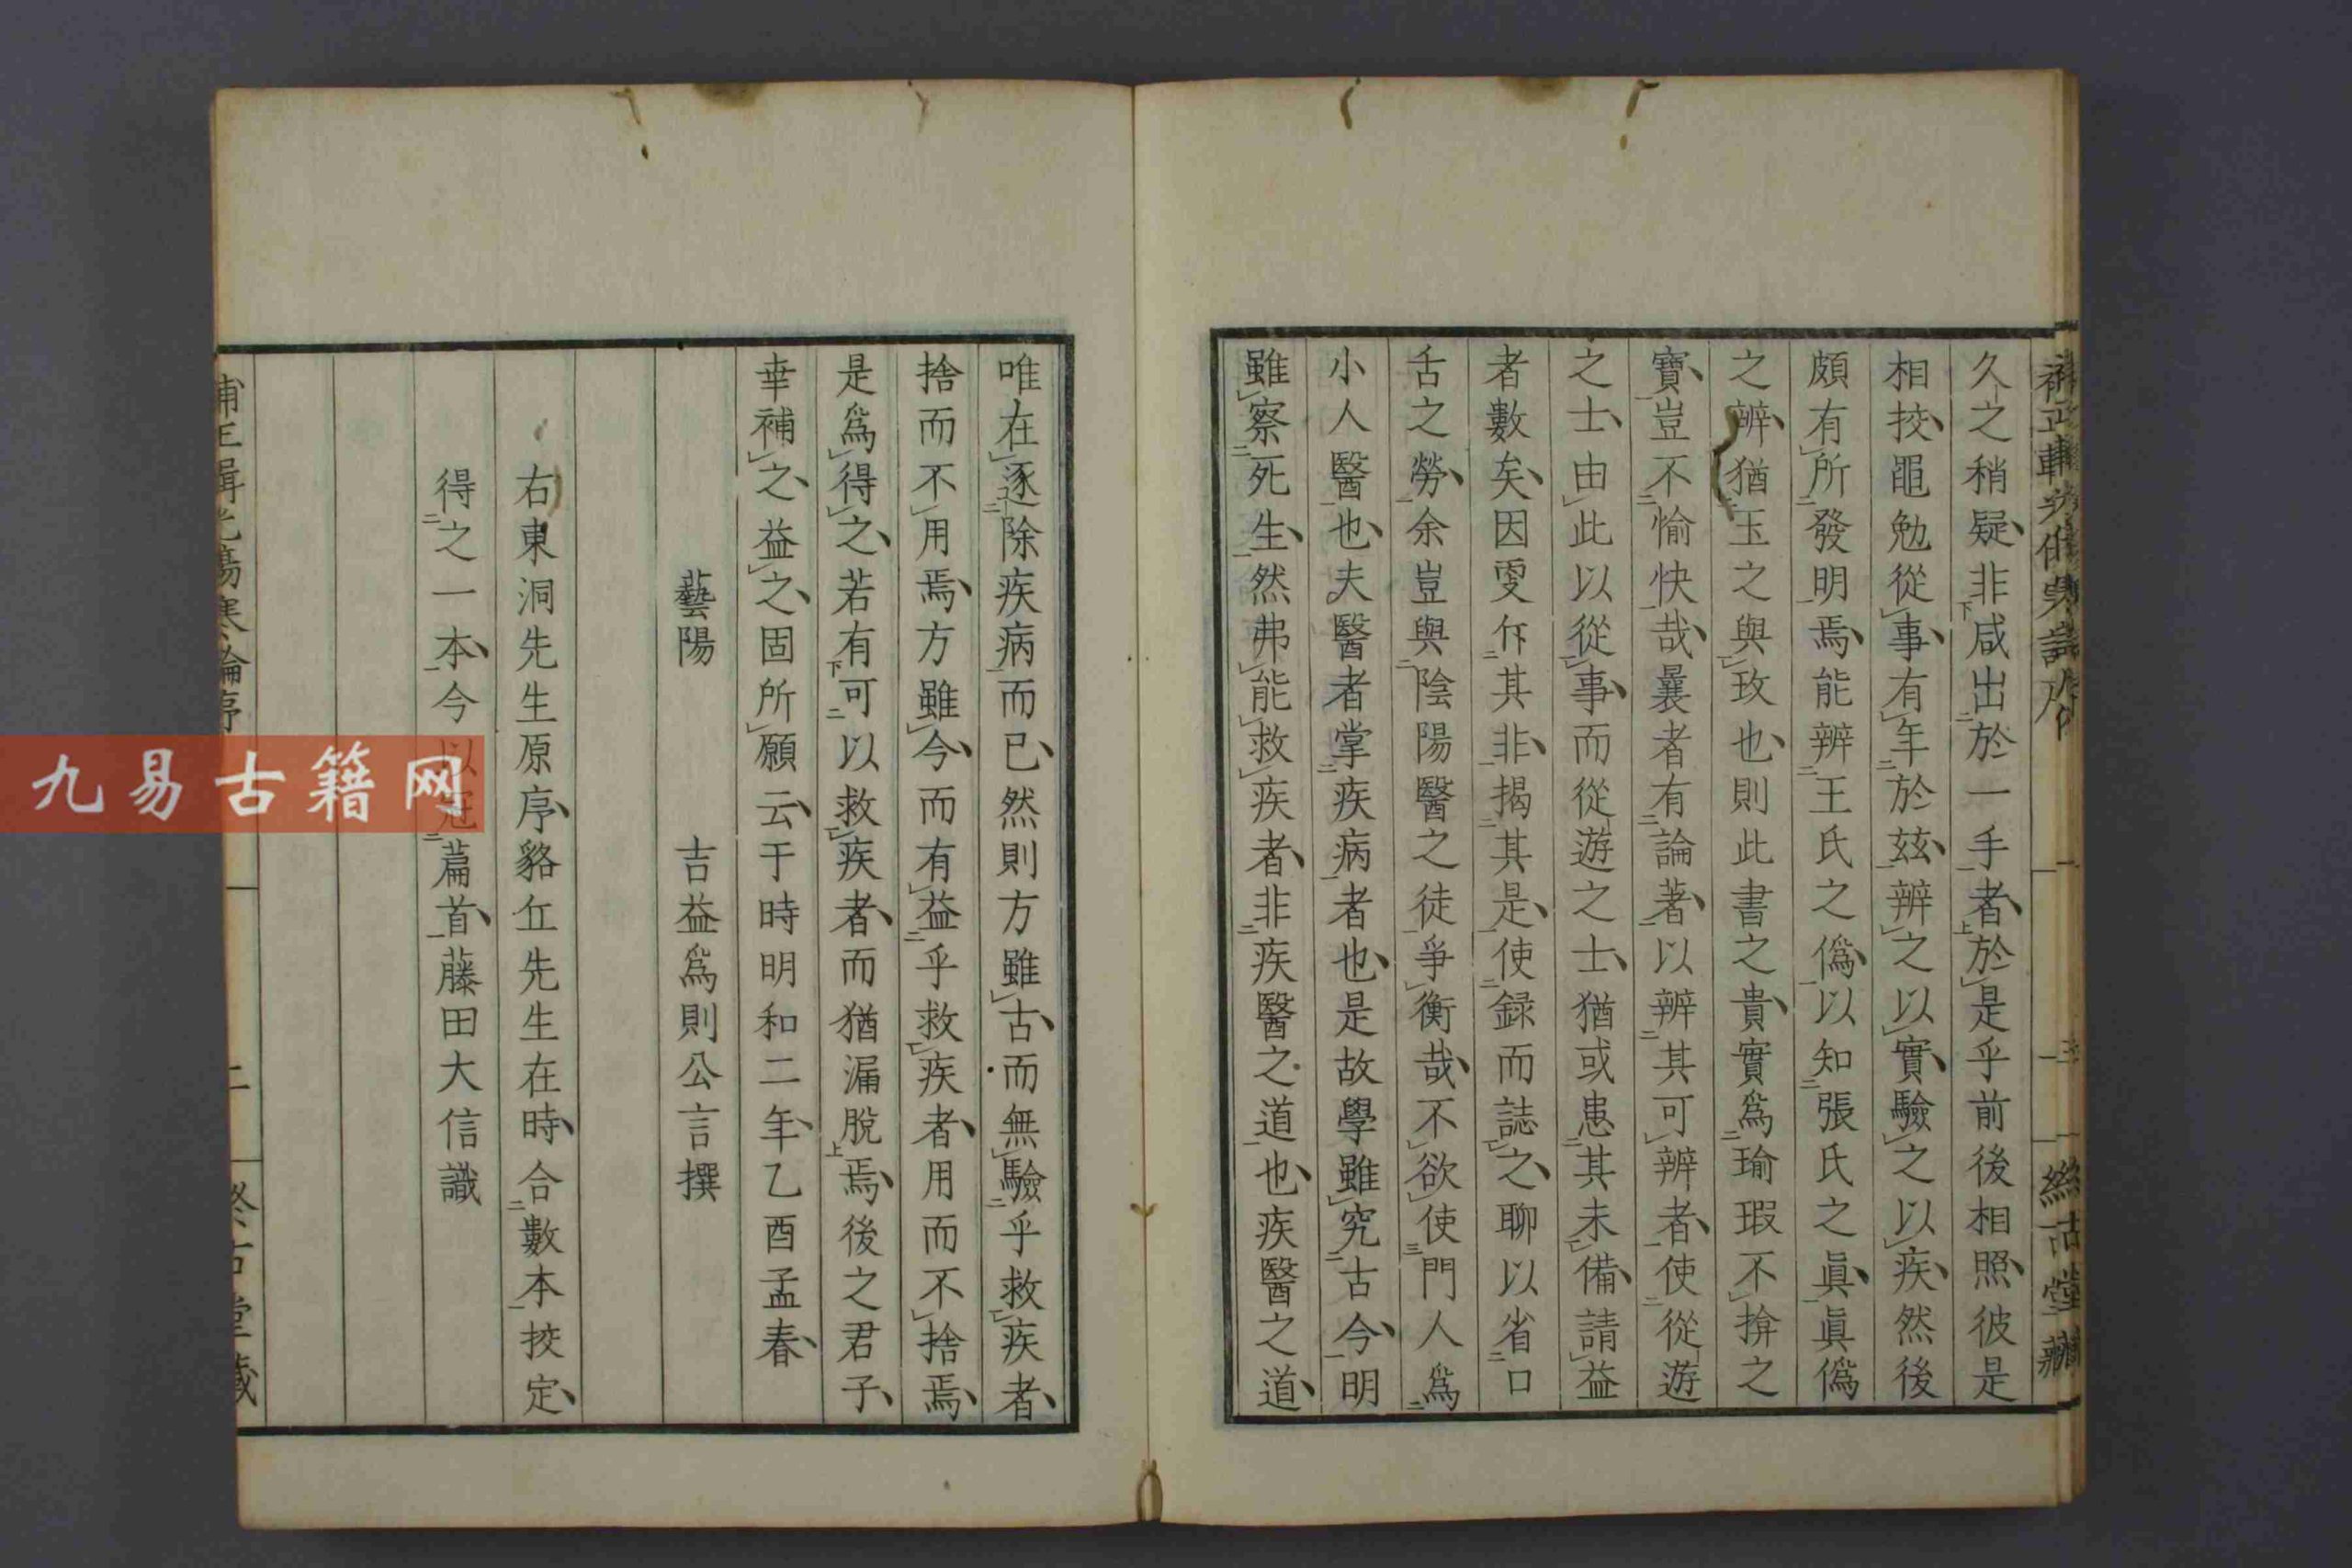 久之稍疑非咸出於一手者於是乎前後相照彼是
相挍黽勉從事有年於玆辨之以實驗之以疾然後
頗有所發明焉能辨王氏之僞以知張氏之眞眞僞
之辨猶玉之與玫也則此書之貴實爲瑜瑕不揜之
寶豈不愉快哉曩者有論著以辨其可辨者使從遊
之士由此以從事而從遊之士猶或患其未備請益
者數矣因雯斥其非揭其是使録而誌之聊以省口
舌之勞余豈與陰陽醫之徒爭衡哉不欲使門人爲
小人醫也夫醫者掌疾病者也是故學雖究古今明
雖察死生然弗能救疾者非疾醫之道也疾醫之道
唯在逐除疾病而已然則方雖古而無驗乎救疾者
捨而不用焉方雖今而有益乎救疾者用而不捨焉
是爲得之若有可以救疾者而猶漏脫焉後之君子
幸補之益之固所願云于時明和二年乙酉孟春
藝陽 吉益爲則公言撰
右東洞先生原序貉丘先生在時合數本挍定
得之一本今以冠篇首藤田大信識
補正輯光傷寒論序 二 終古堂藏
九易古籍网